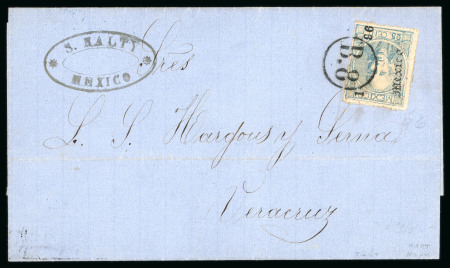 S. NALTY
MEXICO
Sres
L. S. Hargous y Serna
Veracruz
B. 8
Mexico
MEXICO